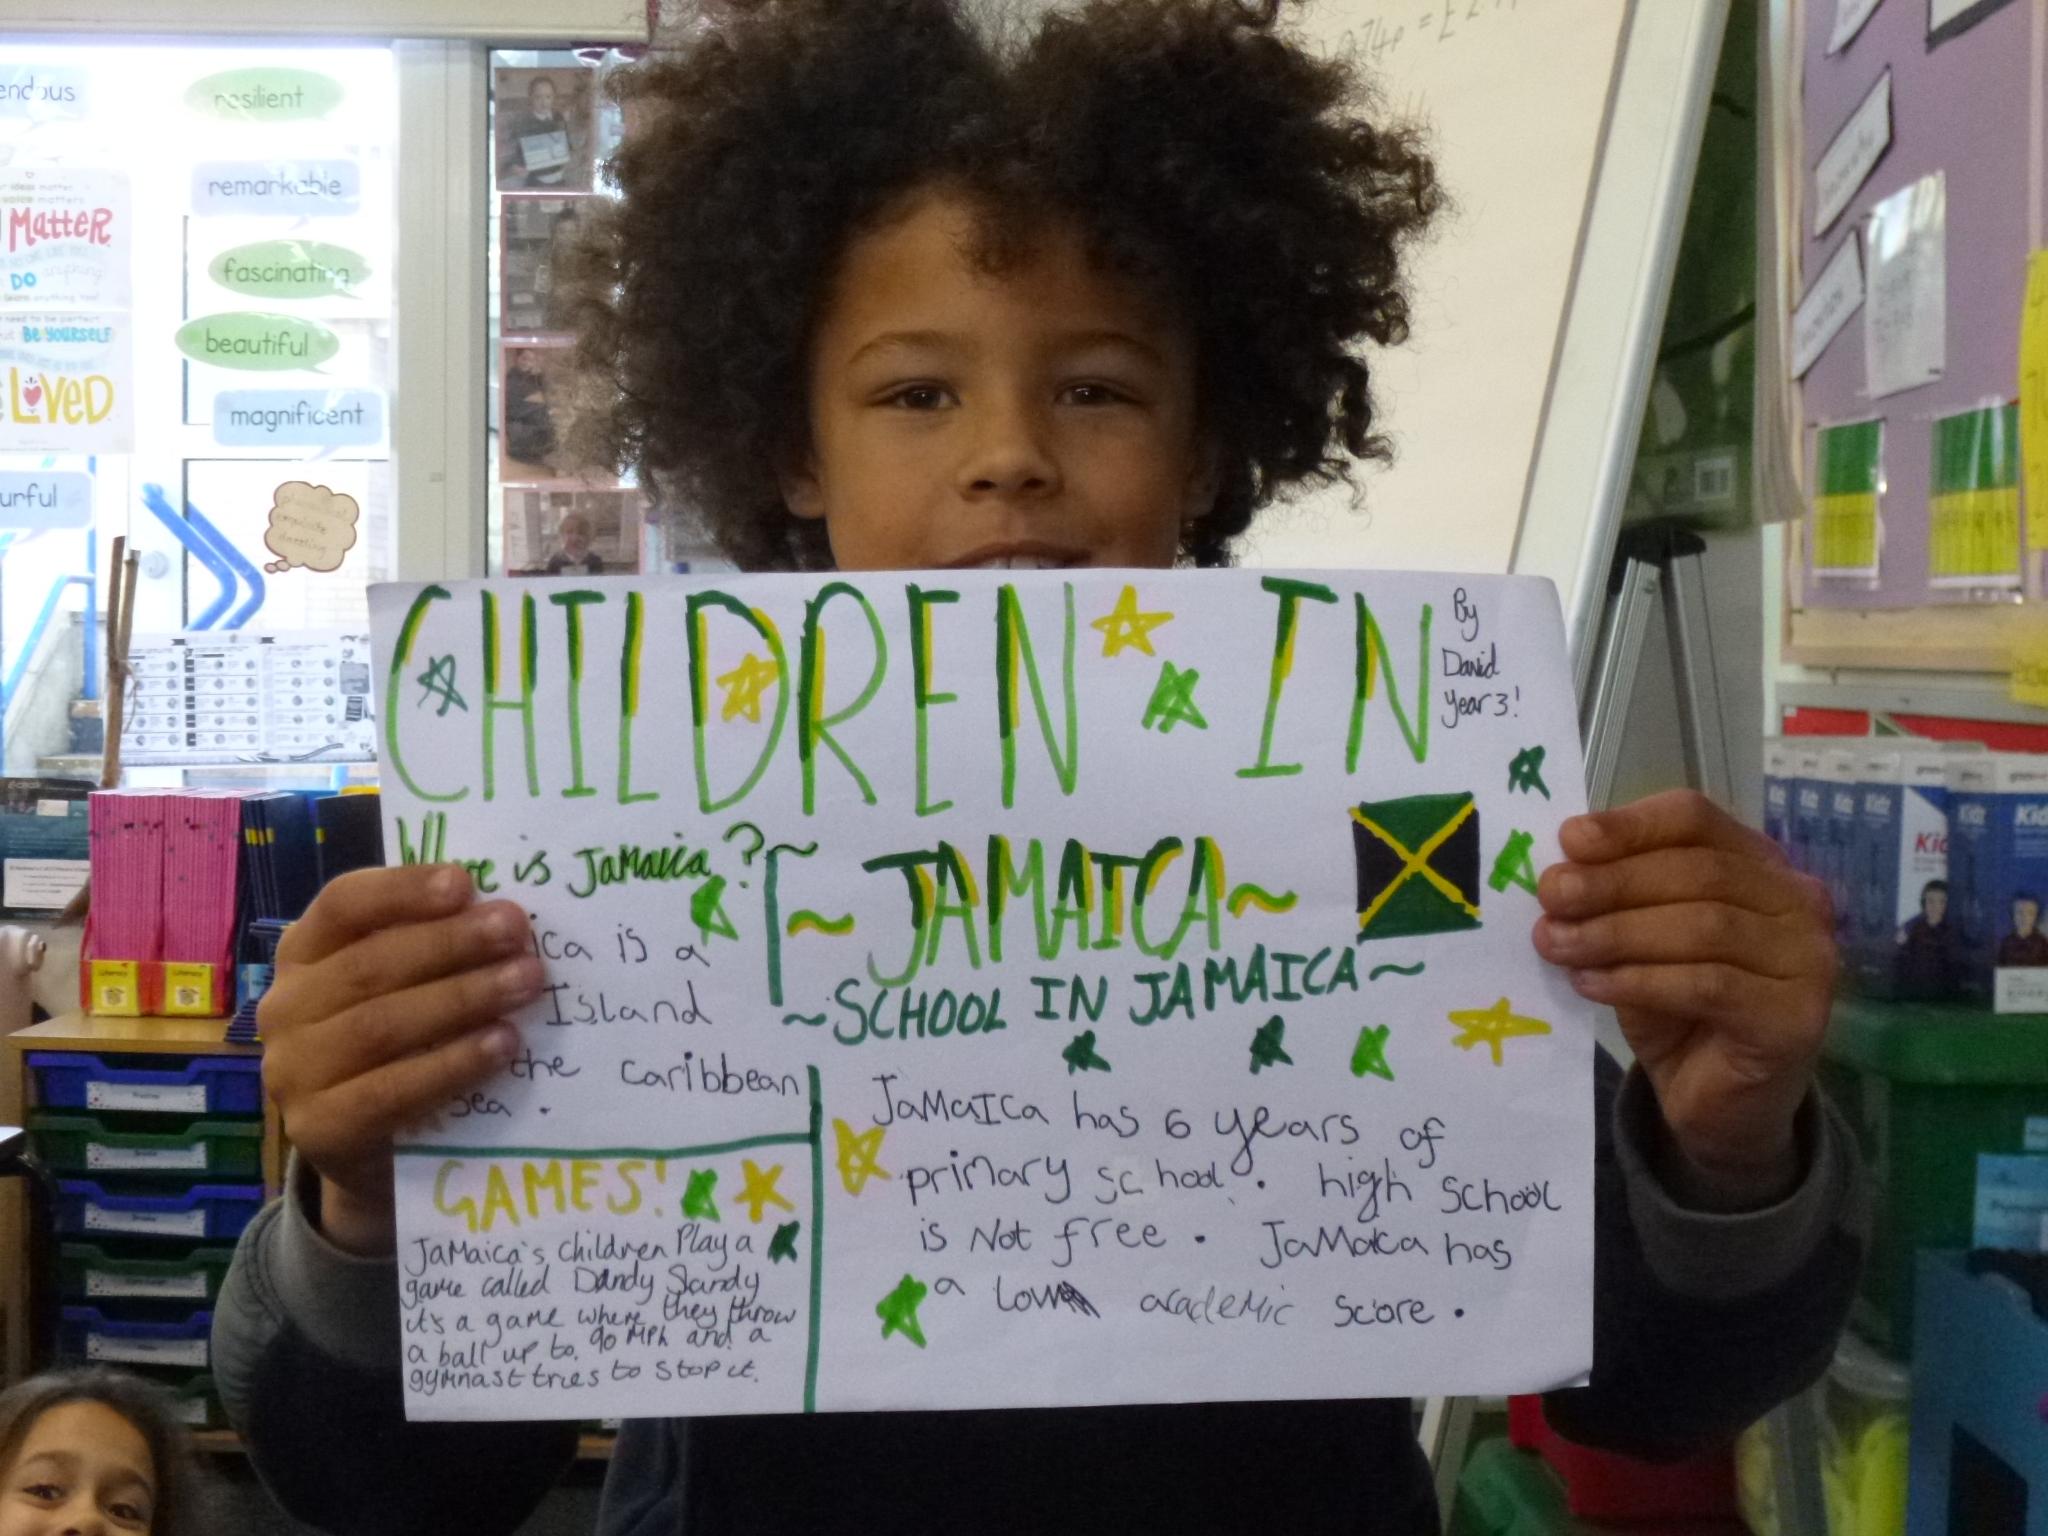 endous
resilient
remarkable
fascinating
beautiful
magnificent
urful
MatteR
DO anything
BE YOURSELF
LOVED
CHILDREN IN
By
David
Year 3!
Where is Jamaica?
ica is a
Island
the caribbean
sea.
~ JAMAICA ~
~ SCHOOL IN JAMAICA ~
GAMES!
Jamaica's children Play a
game called Dandy Sandy
it's a game where they throw
a ball up to 90 MPh and a
gymnast tries to stop it.
JaMaICa has 6 years of
primary school. high School
is Not free. JaMaica has
a low academic score.
Literacy
Literacy
Kidz
Kidz